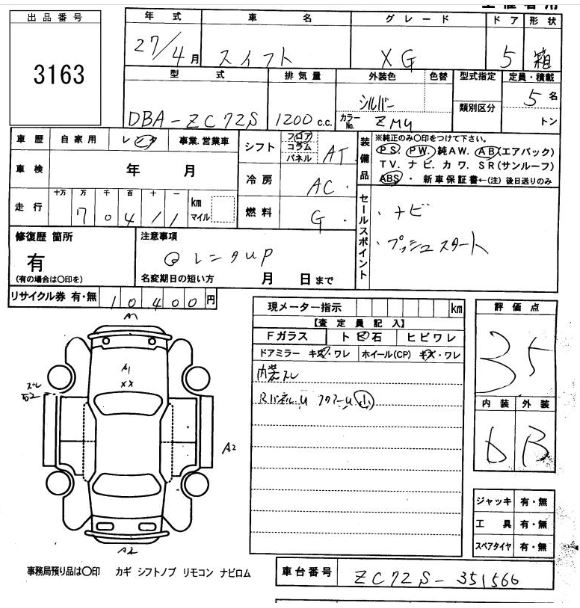 出品番号
3163
年式 車名 グレード ドア 形状
27/4月 スイフト XG 5 箱
型式 排気量 外装色 色替 型式指定 定員・積載
DBA-ZC72S 1200c.c. シルバー カラーNo. ZMU 類別区分 5名 トン
車歴 自家用 レンタ 事業.営業車
車検 年 月
走行 十万 万 千 百 十 一 km マイル
70411
シフト フロア コラム パネル AT
冷房 AC
燃料 G
装備品 ※純正のみ〇印をつけて下さい。
PS. PW. 純AW. AB(エアバック)
TV. ナビ. カワ. SR(サンルーフ)
ABS. 新車保証書←(注)後日送りのみ
セールスポイント
・ナビ
・プッシュスタート
修復歴 箇所
有
(有の場合は〇印を)
注意事項
レンタUP
名変期日の短い方 月 日まで
リサイクル券 有・無 10400円
現メーター指示 km
【査定員記入】
Fガラス トビ石 ヒビワレ
ドアミラー キズ・ワレ ホイール(CP) キズ・ワレ
内装スレ
小
評価点
3.5
内装 外装
B
ジャッキ 有・無
工具 有・無
スペアタイヤ 有・無
A1
XX
A2
A2
事務局預り品は〇印 カギ シフトノブ リモコン ナビロム
車台番号 ZC72S-351566